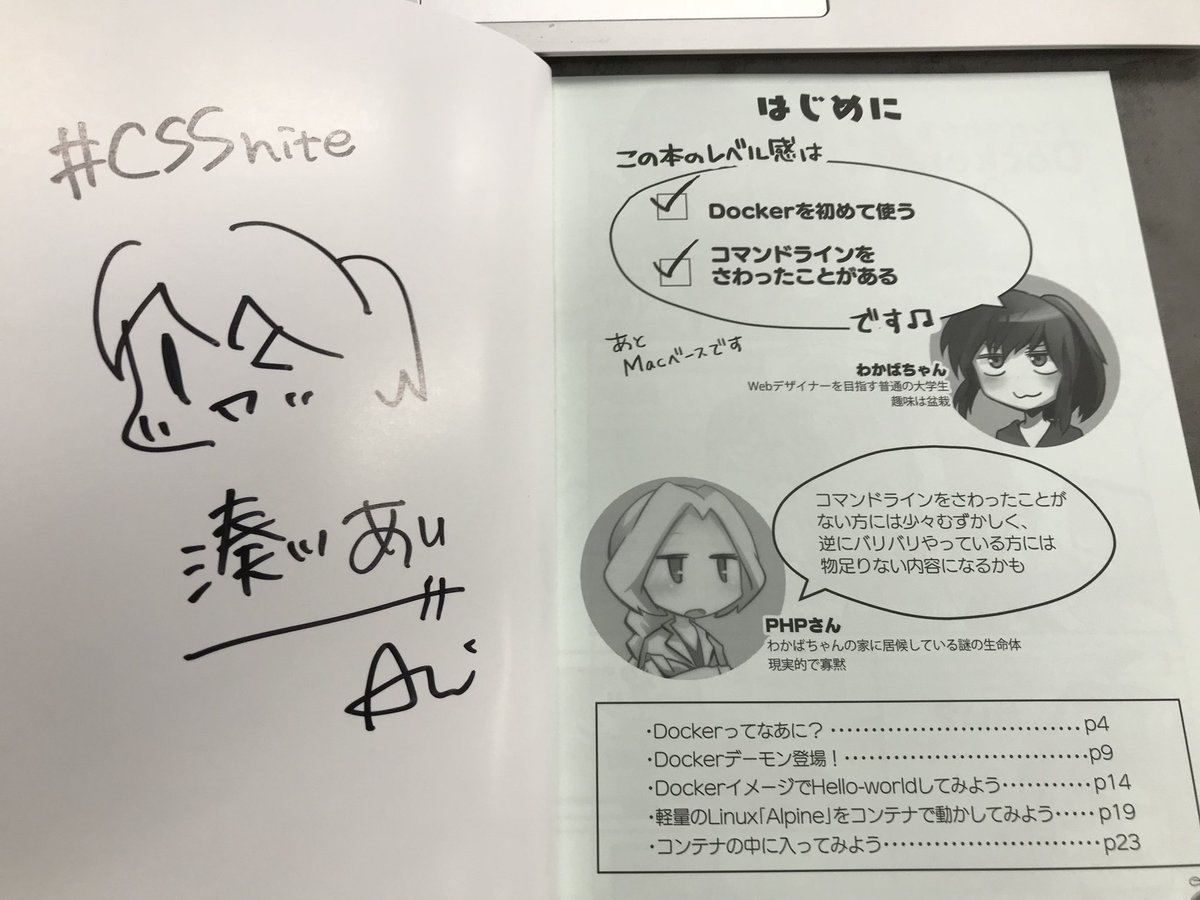 #CSSnite
湊川あい
Ai
はじめに
この本のレベル感は
Dockerを初めて使う
コマンドラインを
さわったことがある
です♫
あと
Macベースです
わかばちゃん
Webデザイナーを目指す普通の大学生
趣味は盆栽
コマンドラインをさわったことが
ない方には少々むずかしく、
逆にバリバリやっている方には
物足りない内容になるかも
PHPさん
わかばちゃんの家に居候している謎の生命体
現実的で寡黙
・Dockerってなあに？ ································ p4
・Dockerデーモン登場！······························p9
・DockerイメージでHello-worldしてみよう···········p14
・軽量のLinux「Alpine」をコンテナで動かしてみよう·····p19
・コンテナの中に入ってみよう··························p23